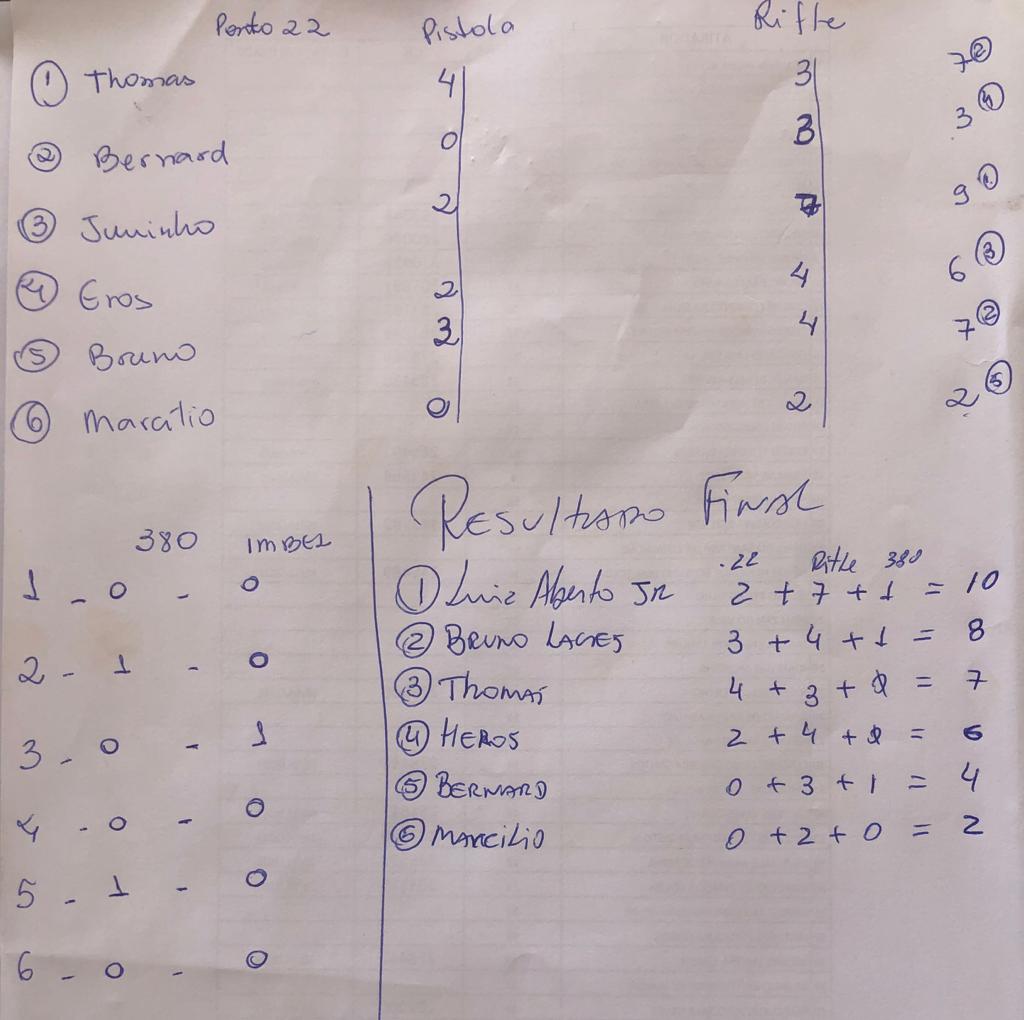 Ponto 22 Pistola Rifle
① Thomas 4 3 7 ②
② Bernard 0 3 3 ④
③ Juninho 2 7 9 ①
④ Eros 2 4 6 ③
⑤ Bruno 3 4 7 ②
⑥ Marcílio 0 2 2 ⑤
380 IMBEL
1 - 0 - 0
2 - 1 - 0
3 - 0 - 1
4 - 0 - 0
5 - 1 - 0
6 - 0 - 0
Resultado Final
.22 Rifle 380
① Luiz Alberto Jr 2 + 7 + 1 = 10
② BRUNO 3 + 4 + 1 = 8
③ Thomas 4 + 3 + 0 = 7
④ HEROS 2 + 4 + 0 = 6
⑤ BERNARD 0 + 3 + 1 = 4
⑥ MARCILIO 0 + 2 + 0 = 2